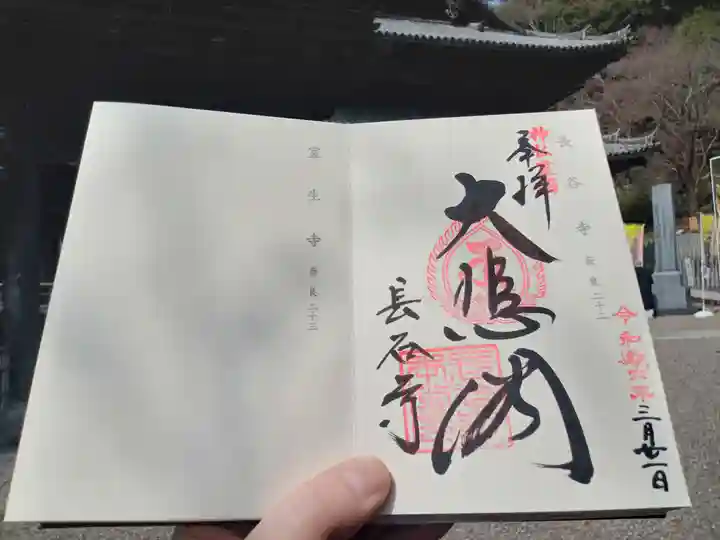 長谷寺 奈良二十二
奉拝
大悲閣
長谷寺
令和六年
三月廿一日
室生寺 奈良二十三